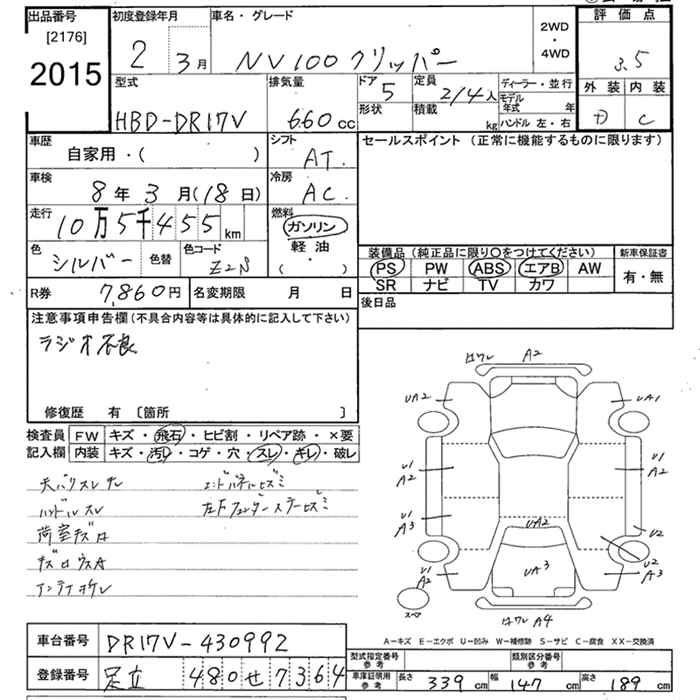 出品番号
[2176]
2015
初度登録年月
2 3月
車名・グレード
NV100クリッパー
2WD
・
4WD
評価点
3.5
外装 内装
D C
型式
HBD-DR17V
排気量
660cc
ドア
5
形状
定員
2/4人
積載 kg
ディーラー・並行
モデル
年式 年
ハンドル 左・右
車歴
自家用・( )
シフト
AT
セールスポイント (正常に機能するものに限ります)
車検
8年3月(18日)
冷房
AC
走行
10万5千455km
燃料
ガソリン
軽油
・( )
色
シルバー
色替
色コード
Z2N
装備品(純正品に限り〇をつけてください)
PS PW ABS エアB AW
SR ナビ TV カワ
新車保証書
有・無
R券 7,860円
名変期限 月 日
後日品
注意事項申告欄(不具合内容等は具体的に記入して下さい)
ラジオ不良
修復歴 有 〔箇所 〕
検査員
記入欄
FW キズ・飛石・ヒビ割・リペア跡・×要
内装 キズ・汚レ・コゲ・穴・スレ・キレ・破レ
天バリスレ
エンドパネルヒズミ
ハンドルスレ
左Fフェンダーステーヒズミ
荷室キズ
アンテナ
ハゲレ A2
UA2 UA1
U1
A2
U1
A2
U1
A3
UA2
U2
UA3
U1
A2
U1
A3
スペア
ハゲレ A4
A－キズ E－エクボ U－凹み W－補修跡 S－サビ C－腐食 XX－交換済
車台番号 DR17V-430992
登録番号 足立 480せ7364
型式指定番号
参考
類別区分番号
参考
車庫証明用
参考
長さ 339cm 幅 147cm 高さ 189cm